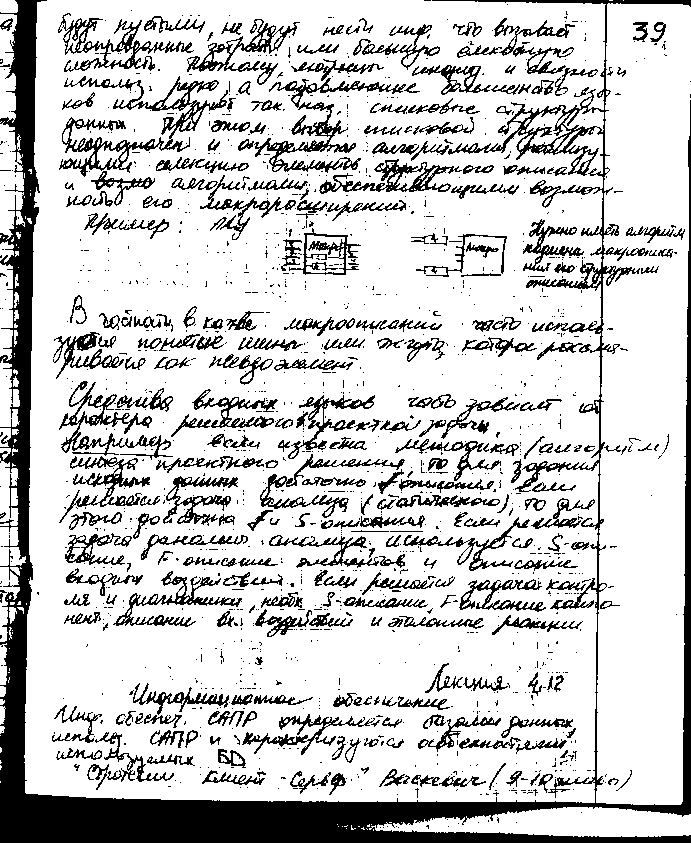 39
будут пустыми, не будут нести инф. что вызовет
неоправданные затраты или большую
сложность. Поэтому, матрицы и
использ. редко, а подавляющее большинство язы-
ков используют так наз. списковые структуры
данных. При этом выбор списковой структуры
неоднозначен и определяется алгоритмами, реализу-
ющими селекцию элементов структурного описания
и алгоритмами, обеспечивающими возмож-
ность его макрорасширения.
Пример:
Макро
макро
Нужно иметь алгоритм
макроописа-
ния его структурным
описанием
В частности, в кач-ве макроописаний часто исполь-
зуются понятие шины или жгута, которое рассма-
тривается как псевдоэлемент
Средства входных языков часто зависят от
характера решаемой проектной задачи.
Например если известна методика (алгоритм)
синтеза проектного решения, то для задания
исходных данных достаточно F описания. Если
решается задача анализа (статического), то для
этого достаточно и S-описания. Если решается
задача анализа, используется S-опи-
сание, F-описание элементов и описание
входных воздействий. Если решается задача контро-
ля и диагностики, необх. S-описание, F-описание компо-
нент, описание вх. воздействий и эталонные реакции
Лекция 4.12
Информационное обеспечение
Инф. обеспеч. САПР определяется базами данных,
использ. САПР и характеризуются особенностями,
используемых БД
"Стратегии Клиент-Сервер" Васкевич